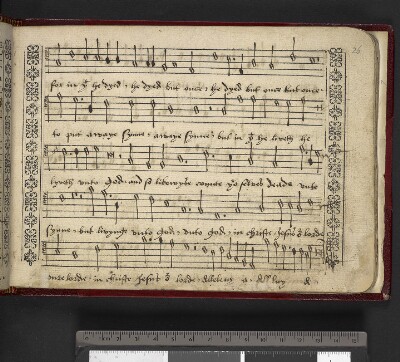 for in yt he dyed : he dyed but once : he dyed but once but once
to put awaye synne : awaye synne : but in yt he lyveth he
lyveth unto god : and so likewyse counte yor selves deade unto
synne : but lyvynge unto god : unto god : in christe Jesus or lorde
oure lorde : in christe Jesus or lorde : alleluya